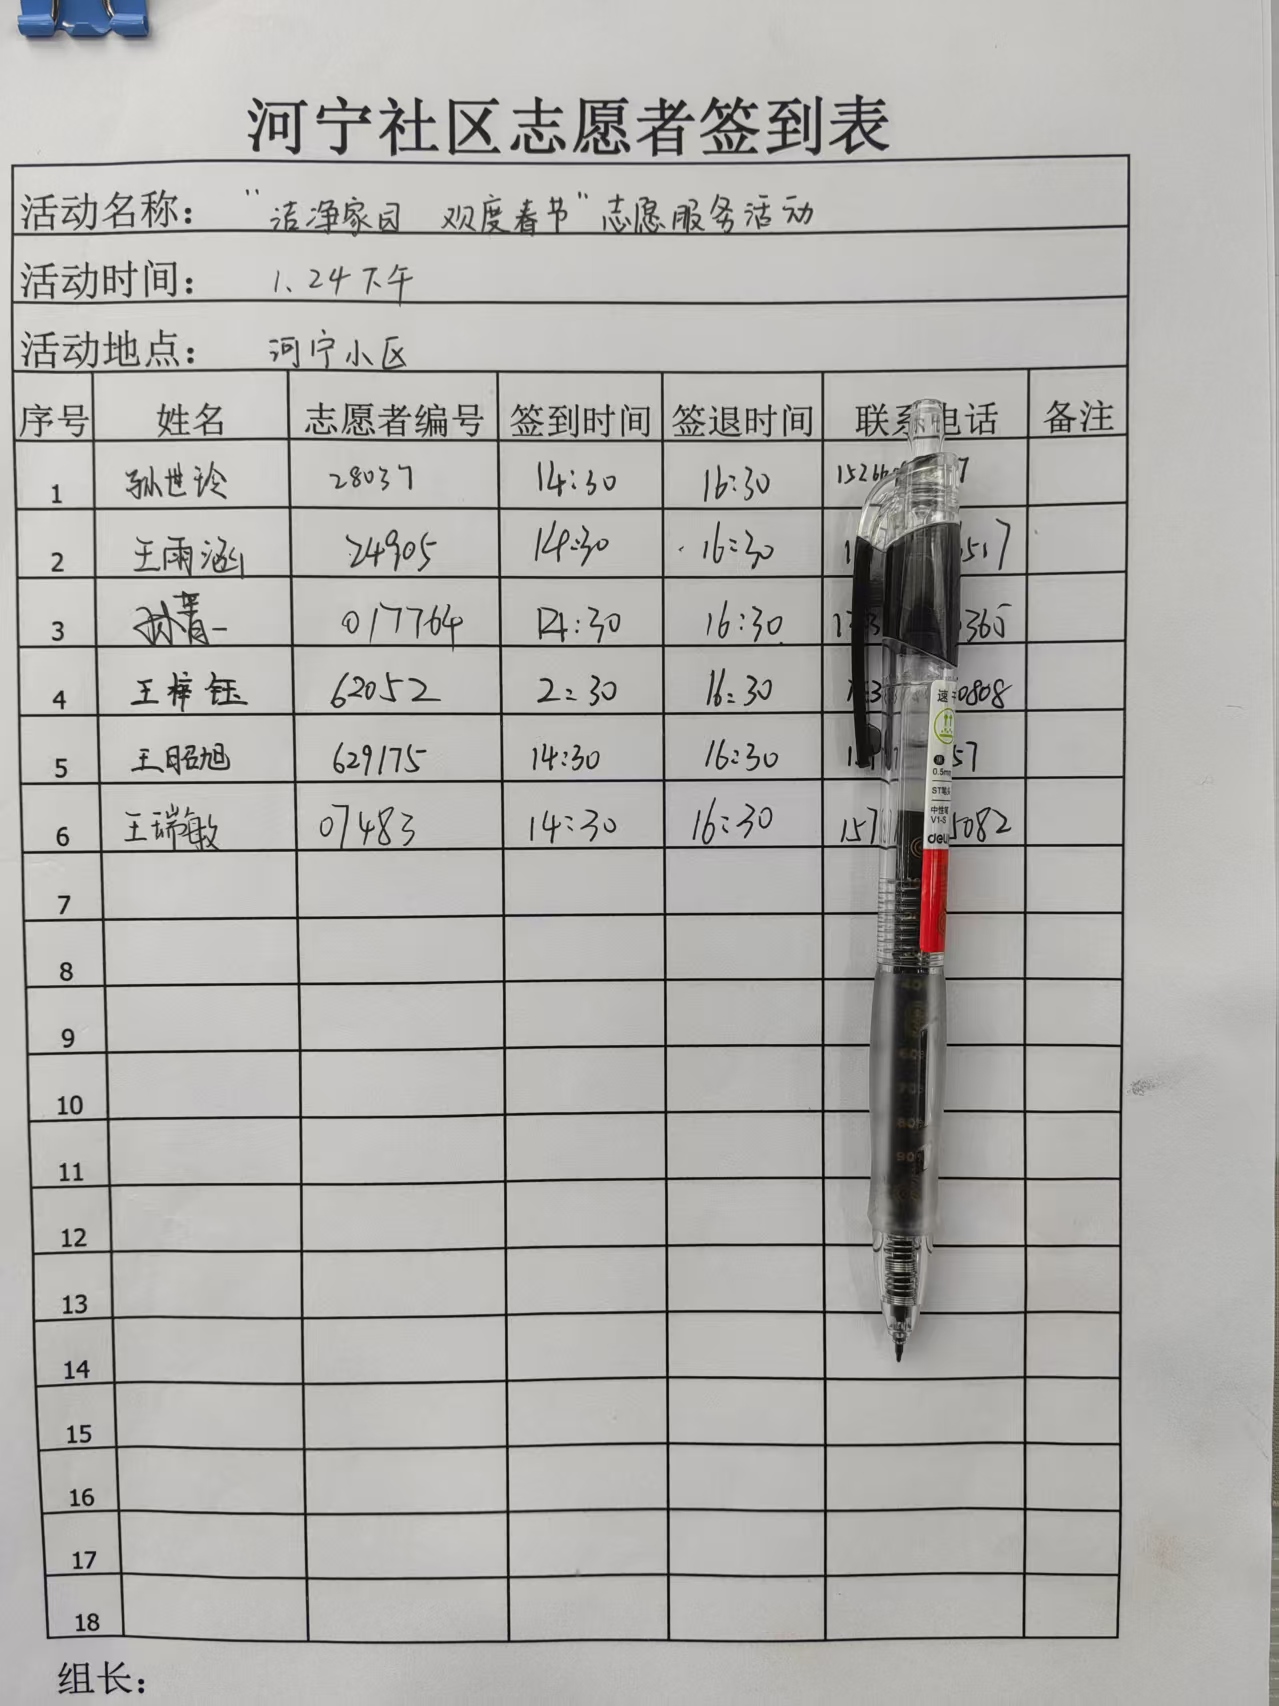 河宁社区志愿者签到表
活动名称： "洁净家园 欢度春节"志愿服务活动
活动时间： 1.24下午
活动地点： 河宁小区
序号 姓名 志愿者编号 签到时间 签退时间 联系电话 备注
1 孙世玲 28037 14:30 16:30 1526 7
2 王雨涵 24905 14:30 16:30 1 517
3 孙菁一 017764 14:30 16:30 365
4 王梓钰 62052 2:30 16:30 0808
5 王昭旭 629175 14:30 16:30 57
6 王瑞敏 07483 14:30 16:30 157 5082
7
8
9
10
11
12
13
14
15
16
17
18
组长：
0.5mm
ST笔头
中性笔
V1-S
deli